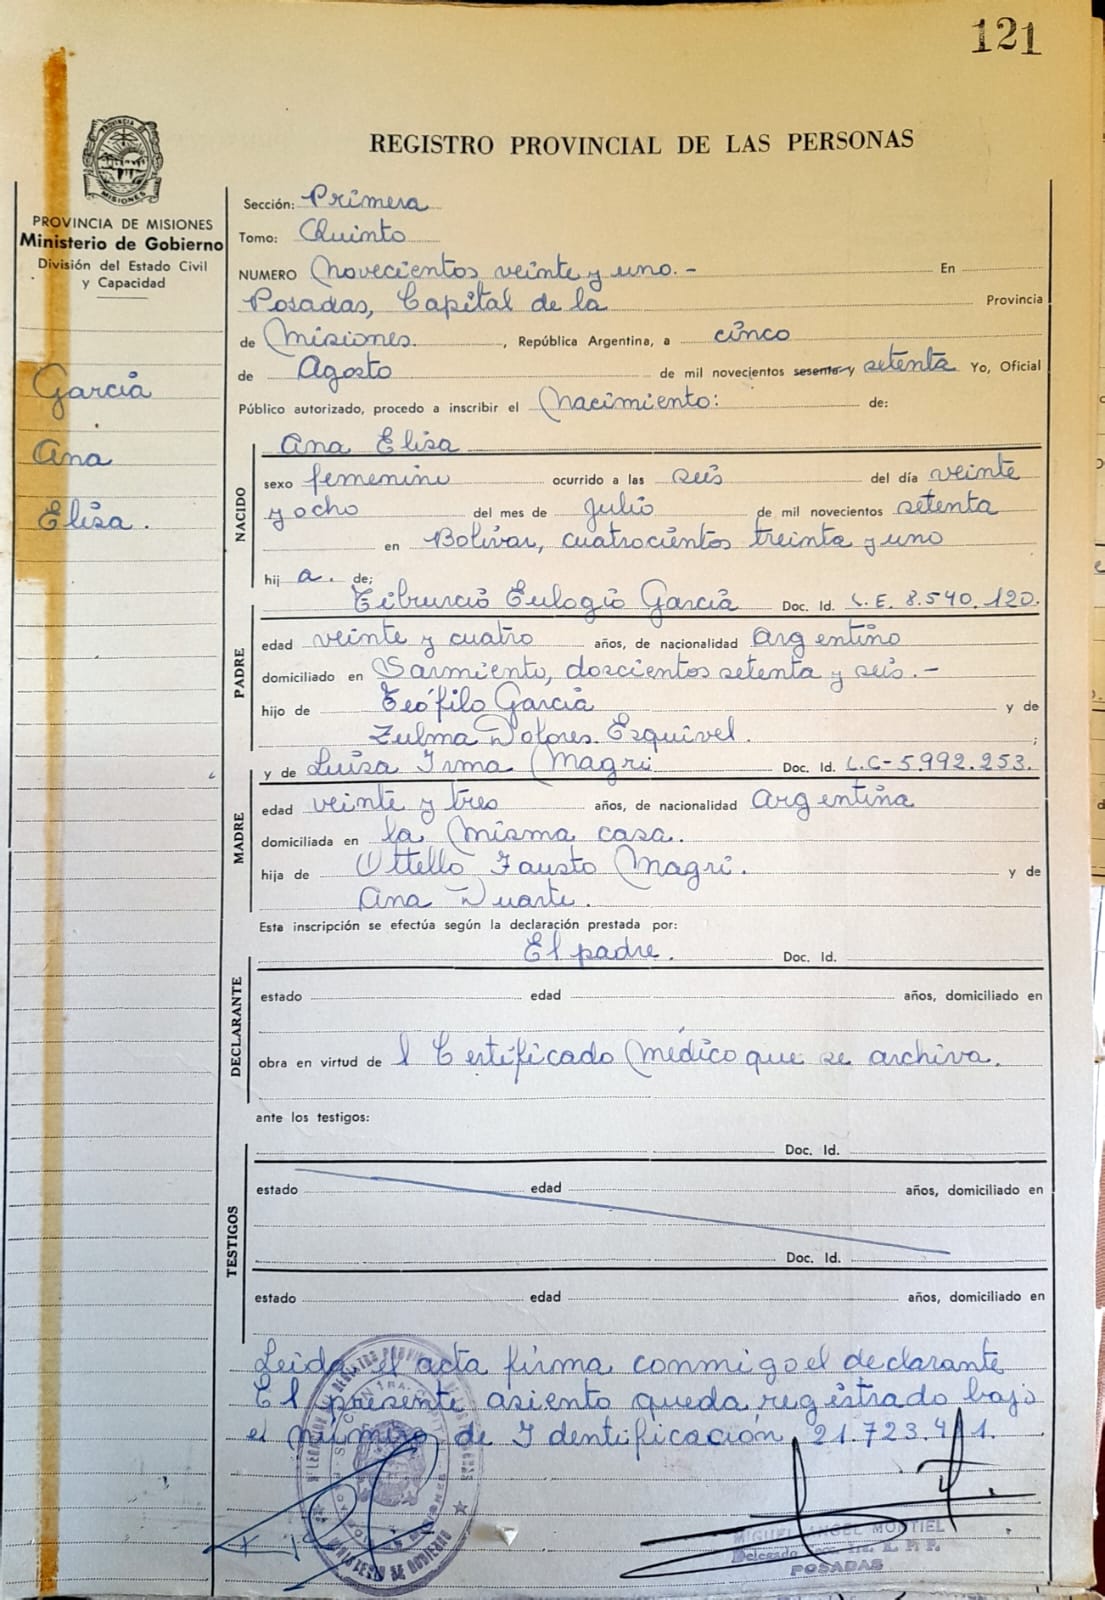 121
REGISTRO PROVINCIAL DE LAS PERSONAS
PROVINCIA DE MISIONES
PROVINCIA DE MISIONES
Ministerio de Gobierno
División del Estado Civil
y Capacidad
García
Ana
Elisa.
Sección: Primera
Tomo: Quinto
NUMERO Novecientos veinte y uno.- En
Posadas, Capital de la Provincia
de Misiones. , República Argentina, a cinco
de Agosto de mil novecientos sesenta y setenta Yo, Oficial
Público autorizado, procedo a inscribir el Nacimiento: de:
NACIDO
Ana Elisa
sexo femenino ocurrido a las seis del día veinte
y ocho del mes de Julio de mil novecientos setenta
en Bolívar, cuatrocientos treinta y uno
hij a. de;
Tiburcio Eulogio García Doc. Id. L.E. 8.540.120.
PADRE
edad veinte y cuatro años, de nacionalidad Argentino
domiciliado en Sarmiento, doscientos setenta y seis.-
hijo de Teófilo García y de
Zulma Dolores Esquivel. ;
y de Luisa Irma Magri Doc. Id. L.C-5.992.253.
MADRE
edad veinte y tres años, de nacionalidad Argentina
domiciliada en la misma casa.
hija de Ottello Fausto Magri. y de
Ana Duarte.
Esta inscripción se efectúa según la declaración prestada por:
El padre. Doc. Id.
DECLARANTE
estado edad años, domiciliado en
obra en virtud de l Certificado Médico que se archiva.
ante los testigos:
Doc. Id.
TESTIGOS
estado edad años, domiciliado en
Doc. Id.
estado edad años, domiciliado en
Leida el acta firma conmigo el declarante
El presente asiento queda registrado bajo
el número de Identificación 21.723.411.
MIGUEL ANGEL MONTIEL
Delegado R. P. P.
POSADAS